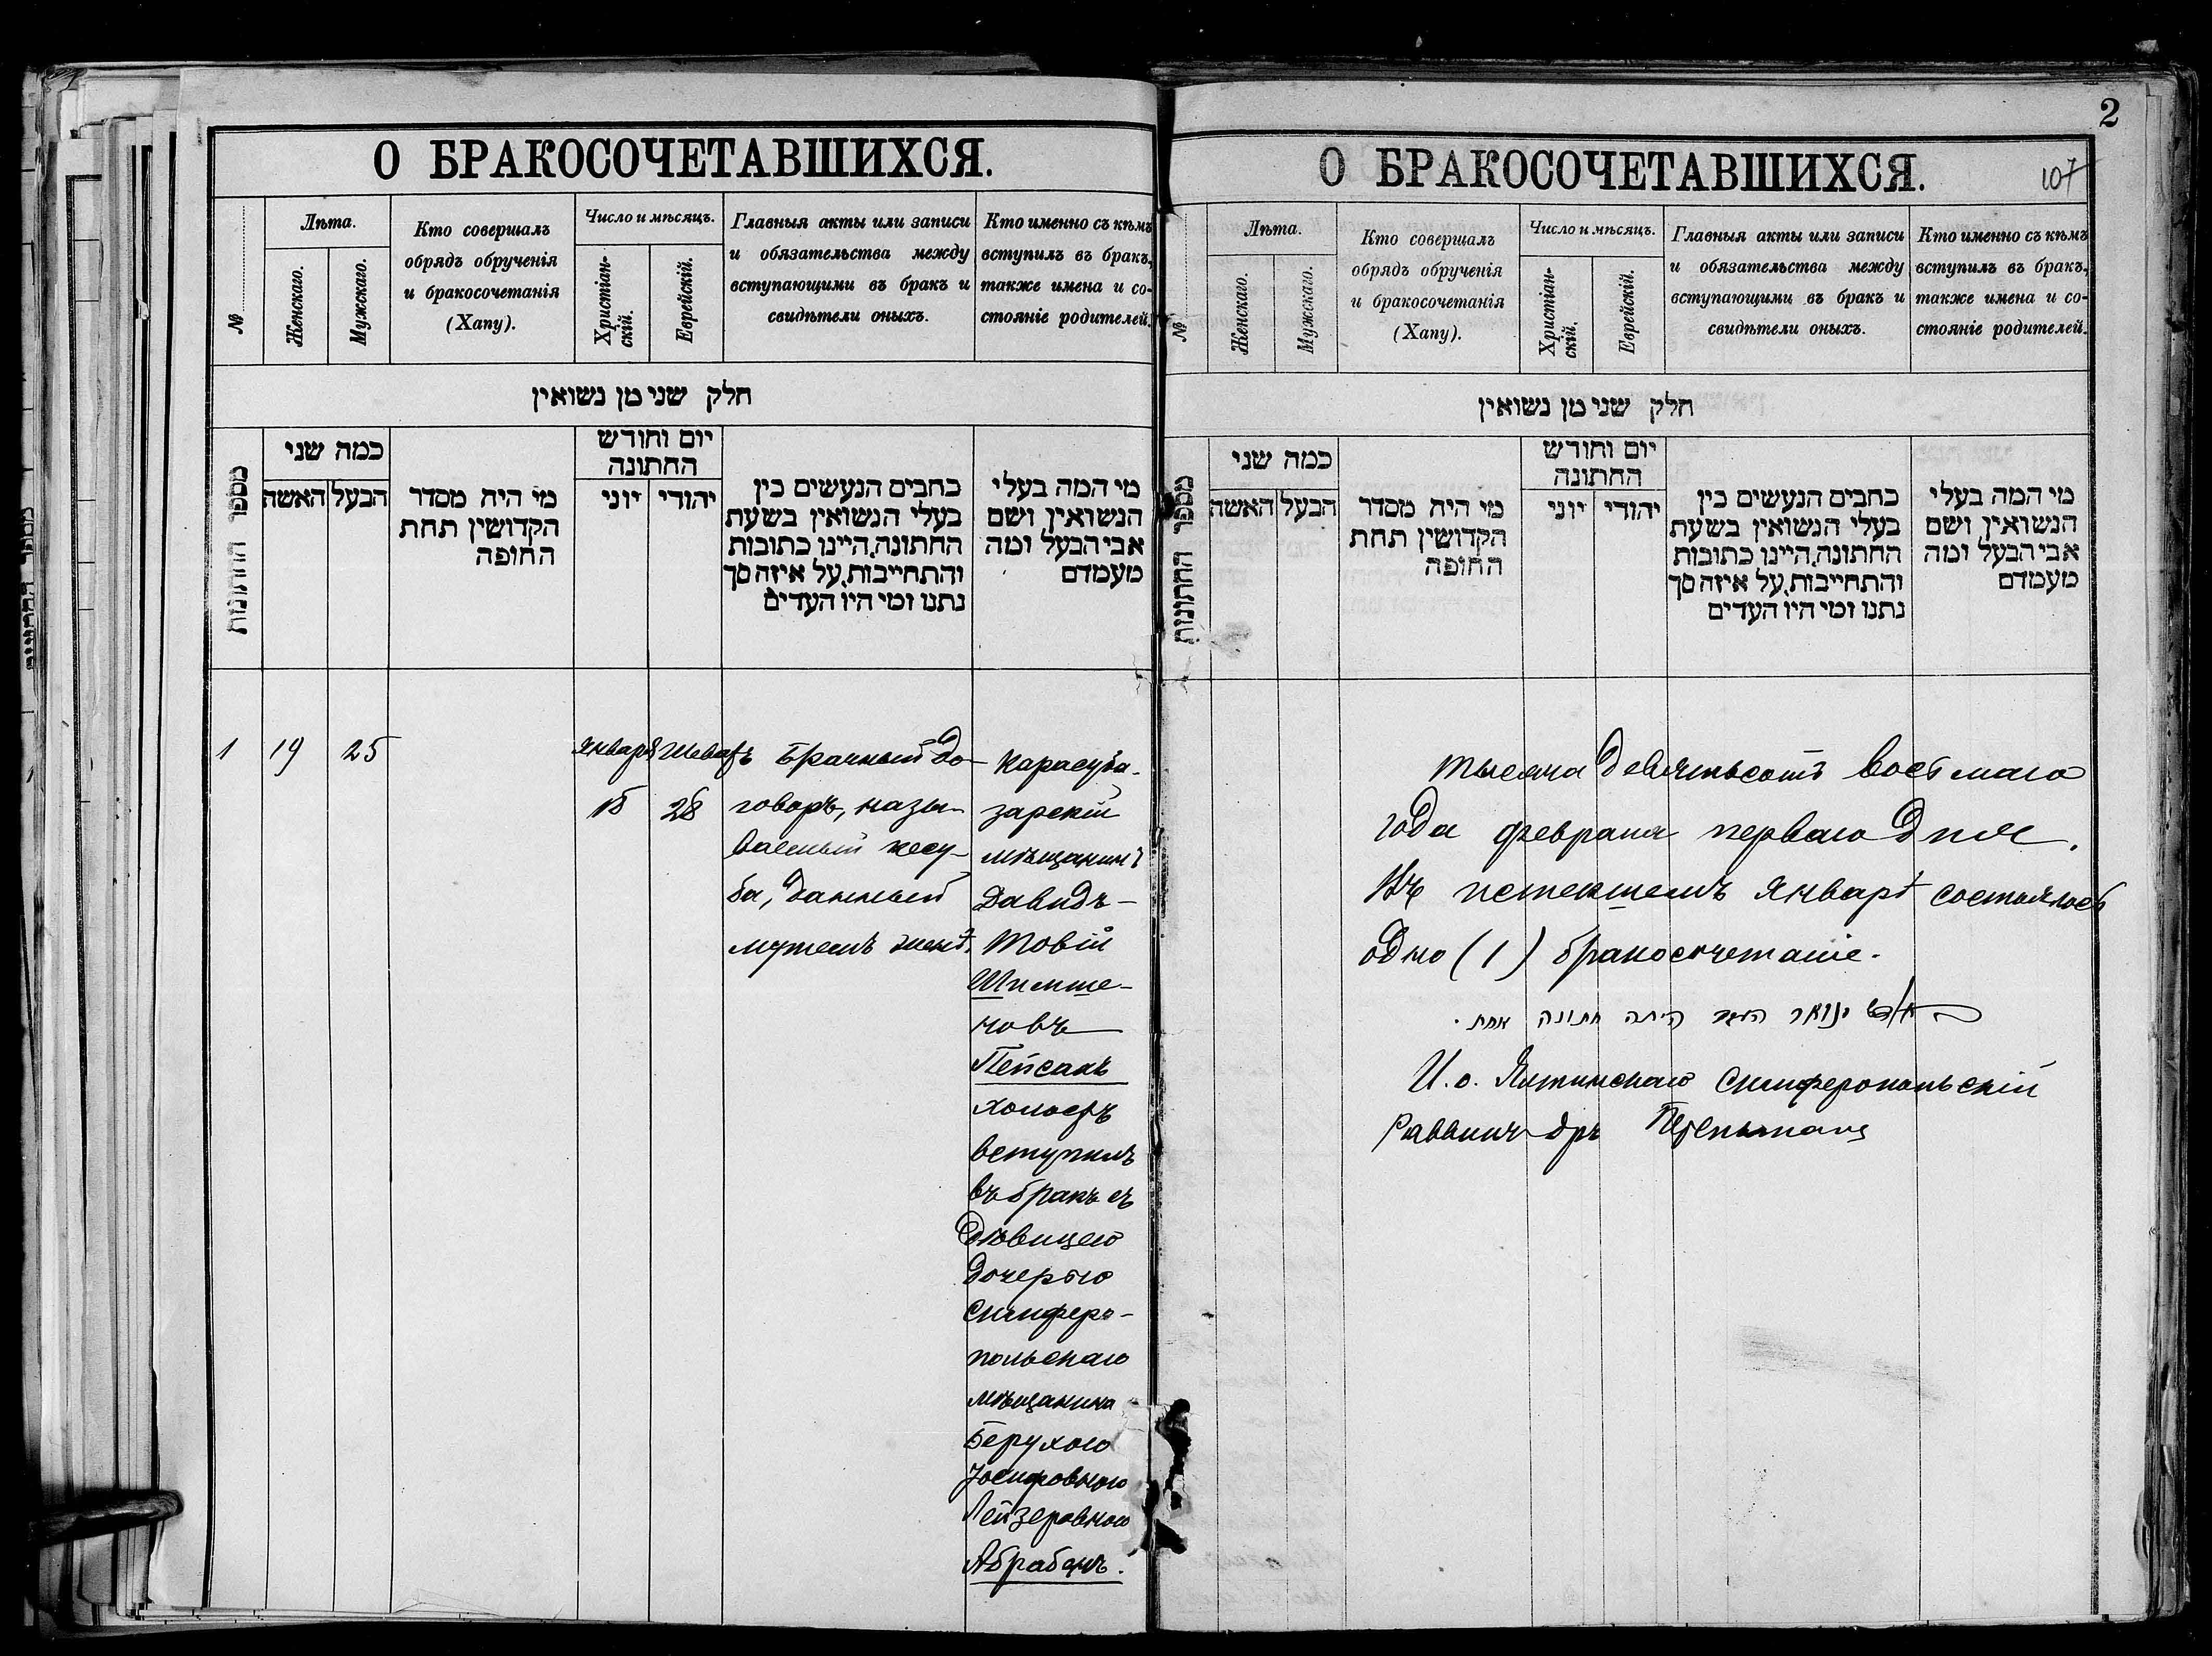 О БРАКОСОЧЕТАВШИХСЯ.
№
Лѣта.
Женскаго.
Мужскаго.
Кто совершалъ
обрядъ обрученія
и бракосочетанія
(Хапу).
Число и мѣсяцъ.
Христіан-
скій.
Еврейскій.
Главныя акты или записи
и обязательства между
вступающими въ бракъ и
свидѣтели оныхъ.
Кто именно съ кѣмъ
вступилъ въ бракъ,
также имена и со-
стояніе родителей.
חלק שני מן נשואין
מספר החתונות
כמה שני
האשה
הבעל
מי היה מסדר
הקדושין תחת
החופה
יום וחודש
החתונה
יוני
יהודי
כתבים הנעשים בין
בעלי הנשואין בשעת
החתונה, היינו כתובות
והתחייבות, על איזה סך
נתנו ומי היו העדים
מי המה בעלי
הנשואין, ושם
אבי הבעל ומה
מעמדם
1
19
25
Января
18
Шеватъ
28
Брачный до-
говоръ, назы-
ваемый кесу-
ба, данный
мужемъ женѣ.
Карасуба-
зарскій
мѣщанинъ
Давидъ-
Товій
Шимше-
новъ
Пейсахъ
холостъ
вступилъ
въ бракъ съ
дѣвицею
дочерью
симферо-
польскаго
мѣщанина
Берухою
Іосифовною
Лейзеровною
Абрабенъ.
2
О БРАКОСОЧЕТАВШИХСЯ.
107
№
Лѣта.
Женскаго.
Мужскаго.
Кто совершалъ
обрядъ обрученія
и бракосочетанія
(Хапу).
Число и мѣсяцъ.
Христіан-
скій.
Еврейскій.
Главныя акты или записи
и обязательства между
вступающими въ бракъ и
свидѣтели оныхъ.
Кто именно съ кѣмъ
вступилъ въ бракъ,
также имена и со-
стояніе родителей.
חלק שני מן נשואין
מספר החתונות
כמה שני
האשה
הבעל
מי היה מסדר
הקדושין תחת
החופה
יום וחודש
החתונה
יוני
יהודי
כתבים הנעשים בין
בעלי הנשואין בשעת
החתונה, היינו כתובות
והתחייבות, על איזה סך
נתנו ומי היו העדים
מי המה בעלי
הנשואין, ושם
אבי הבעל ומה
מעמדם
Тысяча девятьсотъ восьмаго
года февраля перваго дня.
Въ истекшемъ Январѣ состоялось
одно (1) бракосочетаніе.
ינואר היתה חתונה אחת.
И. о. Ялтинскаго Симферопольскій
Раввинъ дръ